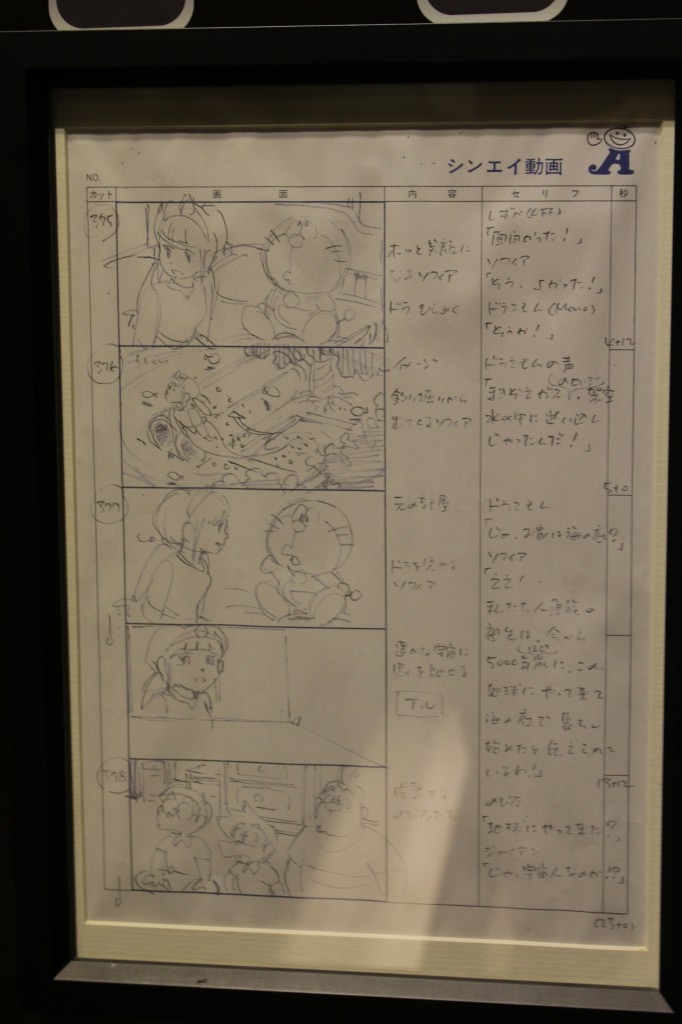 シンエイ動画
NO.
カット 画面 内容 セリフ 秒
375
ホッと笑顔に
なるソフィア
「面白かった！」
ソフィア
「そう、よかった！」
ドラえもん
「そうか！」
4+12
376
釣り堀から
出てくるソフィア
ドラえもんの声
水の中に迷い込
じゃったんだ！」
5+0
377
元の部屋
ドラを見やる
ソフィア
ドラえもん
「じゃ、お家は海の底？」
ソフィア
「ええ！
私たち人魚族の
祖先は、今から
5000年前に、この
地球にやって来て
海の底で暮らし
始めたと伝えられて
いるわ！」
遥かな宇宙に
思いを馳せる
T.U
13+12
378
のびたたち
のびた
「地球にやって来た？」
ジャイアン
「じゃ、宇宙人なのか!?」
(23+0)